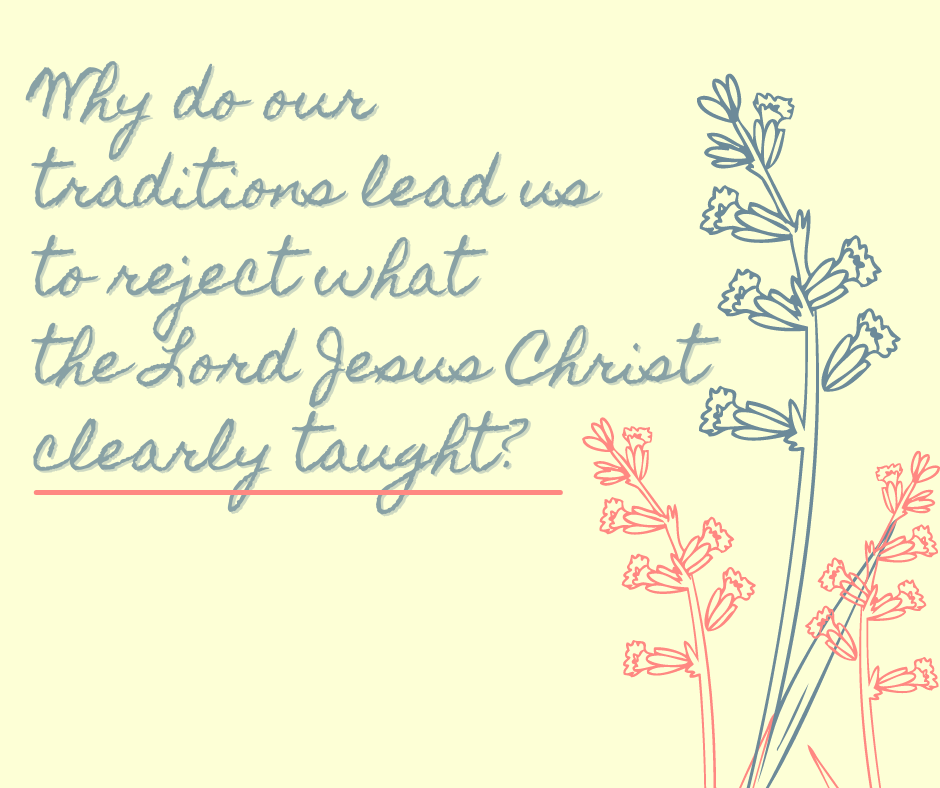 Why do our
traditions lead us
to reject what
the Lord Jesus Christ
clearly taught?